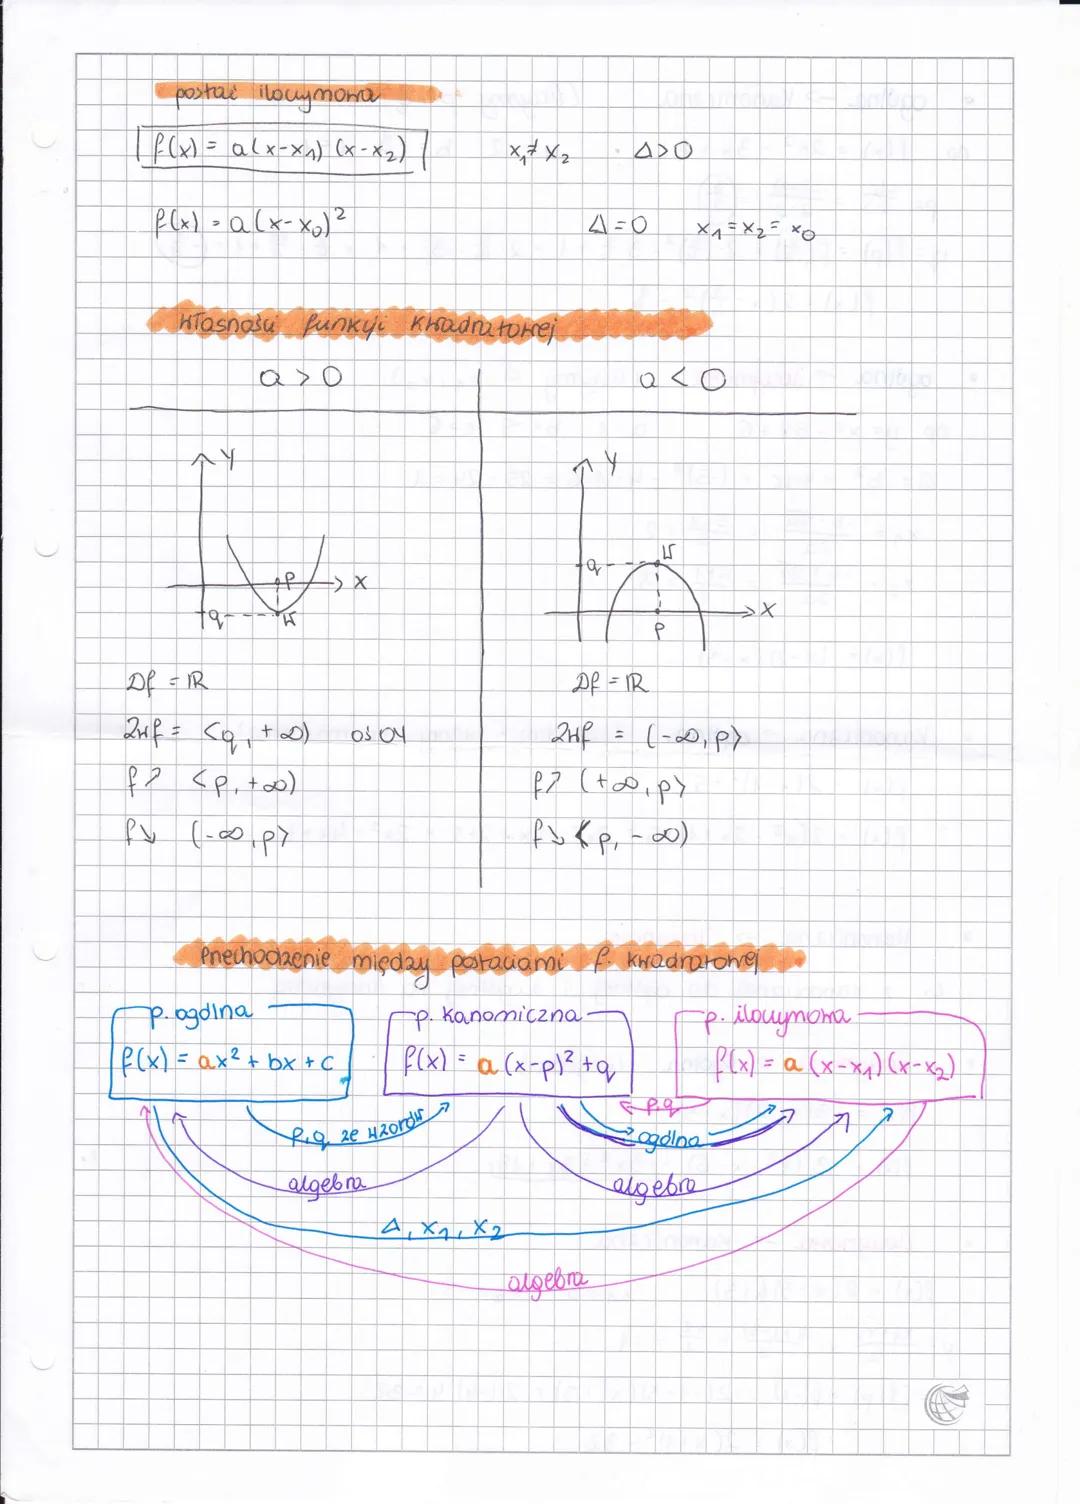 postać iloczynowa
f(x) = a(x-x₁) (x-x₂) x₁≠x₂ Δ>0
f(x) = a(x-x₀)² Δ=0 x₁=x₂=x₀
Własności funkcji kwadratowej
a > 0 a < 0
Y Y
q W
p X
q W X
p
Df = ℝ Df = ℝ
Zwf = <q, +∞) oś OY Zwf = (-∞, p>
f↗ <p, +∞) f↗ (+∞, p>
f↘ (-∞, p> f↘ <p, -∞)
Przechodzenie między postaciami f. kwadratowej
p. ogólna p. kanoniczna p. iloczynowa
f(x) = ax² + bx + c f(x) = a (x-p)² + q f(x) = a (x-x₁)(x-x₂)
p,q
p,q ze wzorów ogólna
algebra algebra
Δ, x₁, x₂
algebra